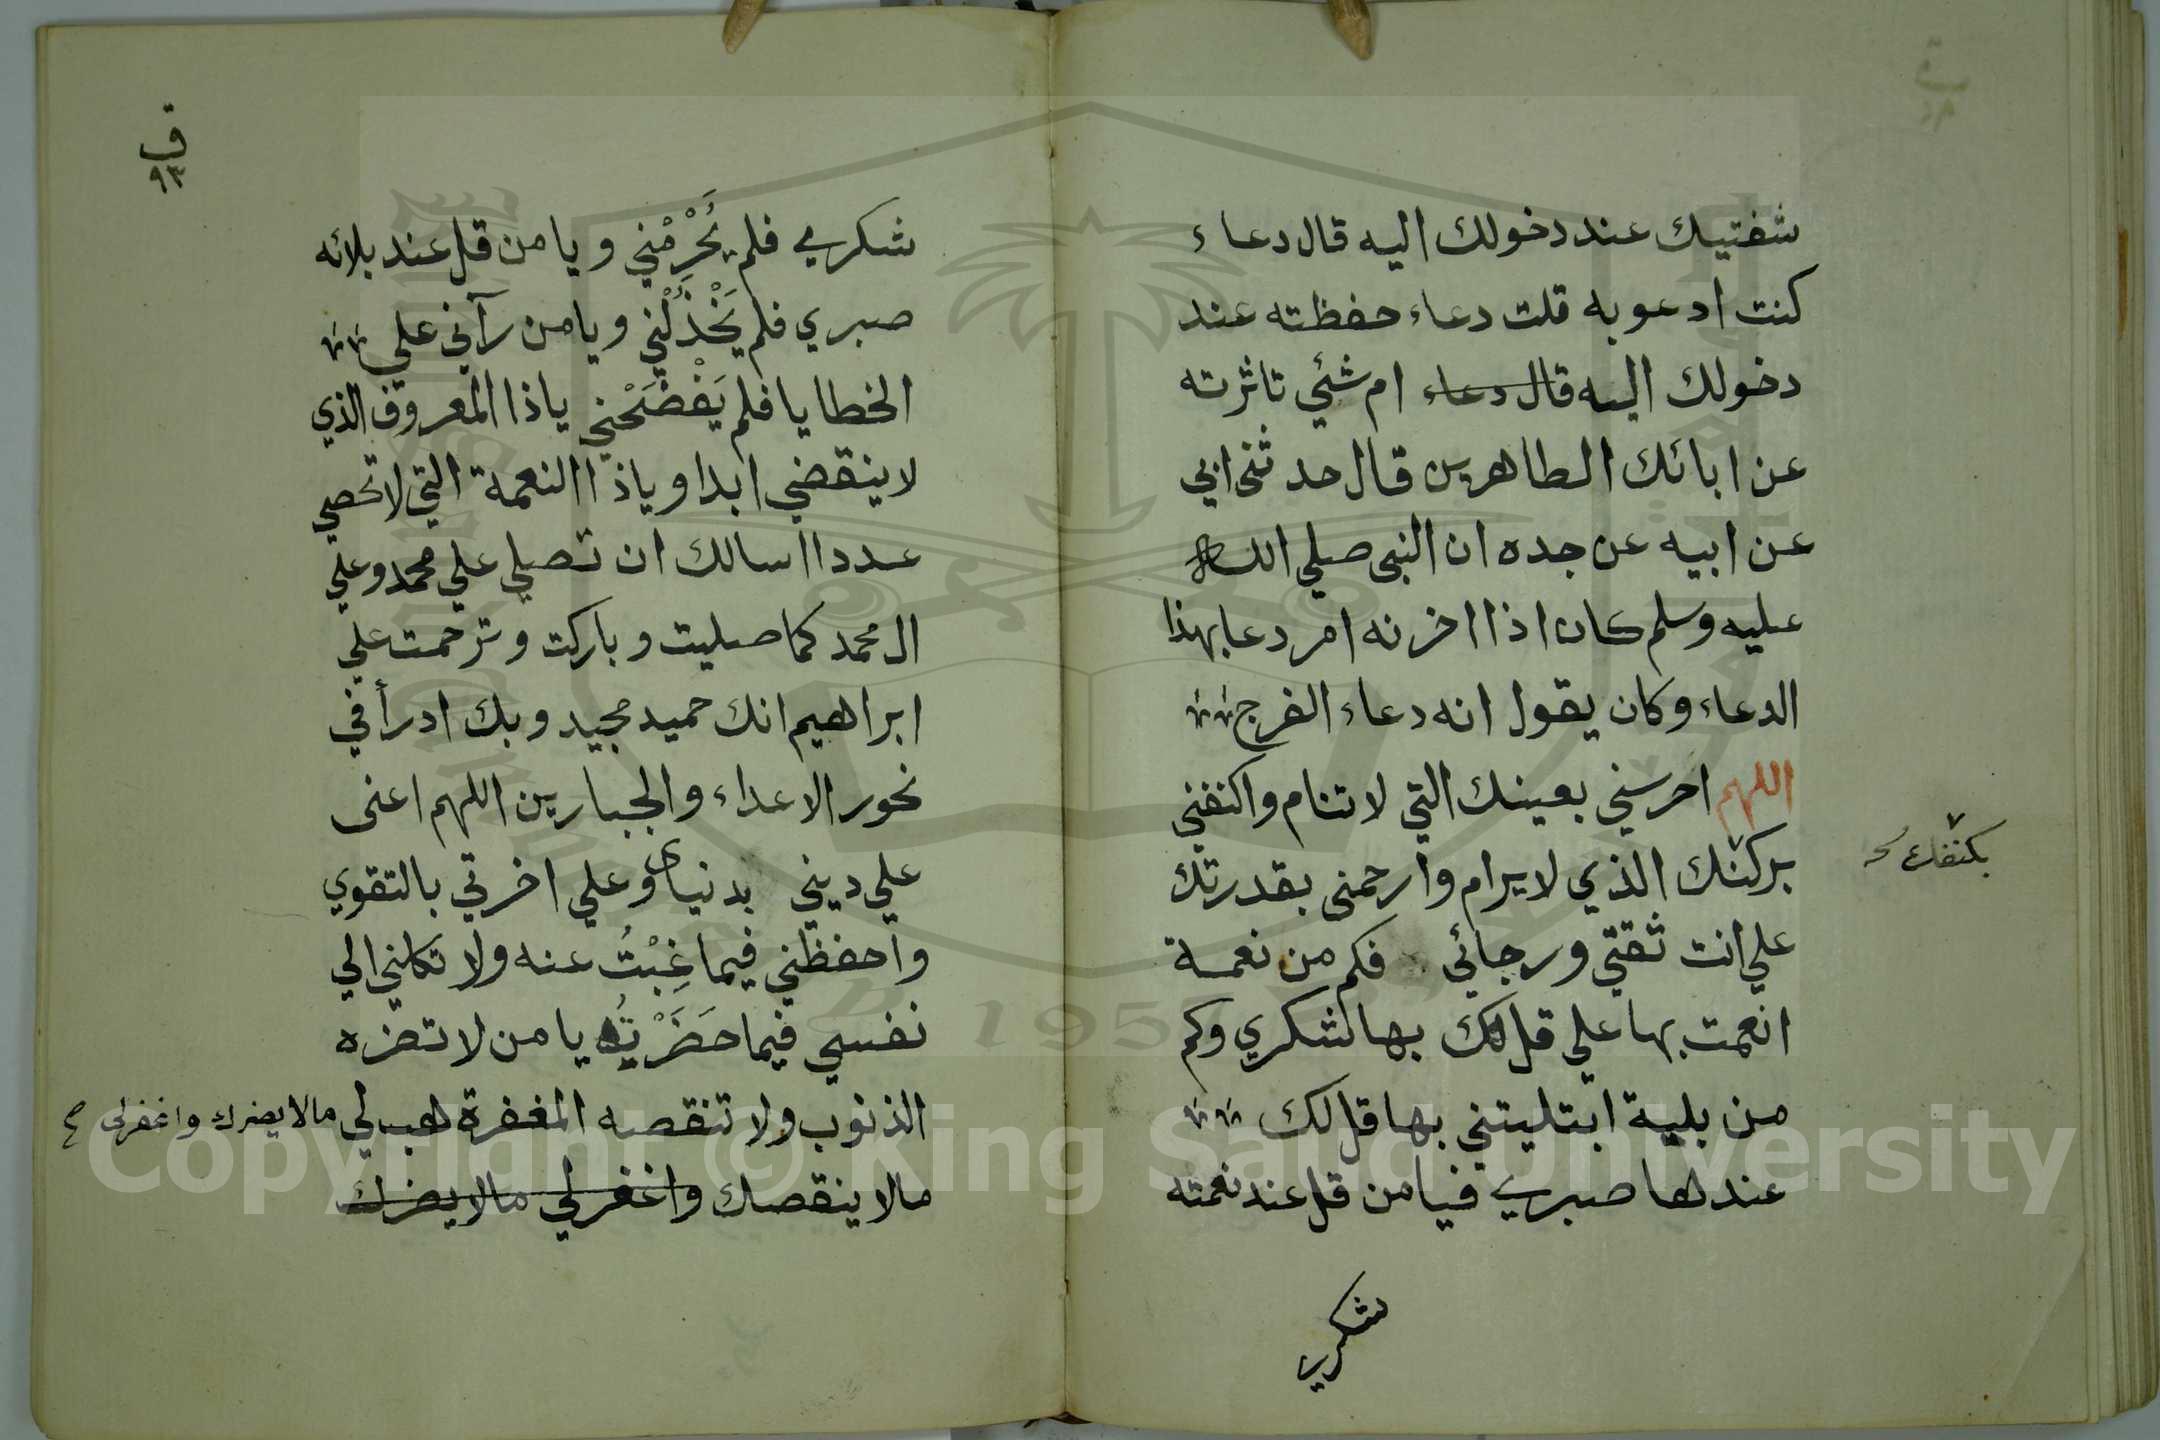 شفتيك عند دخولك اليه قال دعاء
كنت ادعو به قلت دعاء حفظته عند
دخولك اليه قال دعاء ام شئي تاثرته
عن ابائك الطاهرين قال حدثنى ابي
عن ابيه عن جده ان النبى صلي الله
عليه وسلم كان اذا اخزنه امر دعا بهذا
الدعاء وكان يقول انه دعاء الفرج
اللهم احرسني بعينك التي لا تنام واكنفني
بركنك الذي لا يرام وارحمنى بقدرتك
بكنفك
علي انت ثقتي ورجائي فكم من نعمة
انعمت بها علي قل لك بها شكري وكم
من بلية ابتليتني بها قل لك
عندها صبري فيا من قل عند نعمته
شكري
ق
٩٣
شكري فلم يَحْرِمْني ويا من قل عند بلائه
صبري فلم يَخْذُلْني ويا من رآني علي
الخطايا فلم يَفْضَحْني ياذا المعروف الذي
لا ينقضي ابدا وياذا النعمة التي لا تحصي
عددا اسالك ان تصلي علي محمد وعلي
ال محمد كما صليت وباركت وترحمت علي
ابراهيم انك حميد مجيد وبك ادرأ في
نحور الاعداء والجبارين اللهم اعنى
علي ديني بدنياى وعلي اخرتي بالتقوي
واحفظني فيما غِبْتُ عنه ولا تكلني الي
نفسي فيما حَضَرْتُه يا من لا تضره
الذنوب ولا تنقصه المغفرة هب لي مالا يضرك واغفرلى
مالا ينقصك واغفر لي مالا يضرك
Copyright © King Saud University
1957